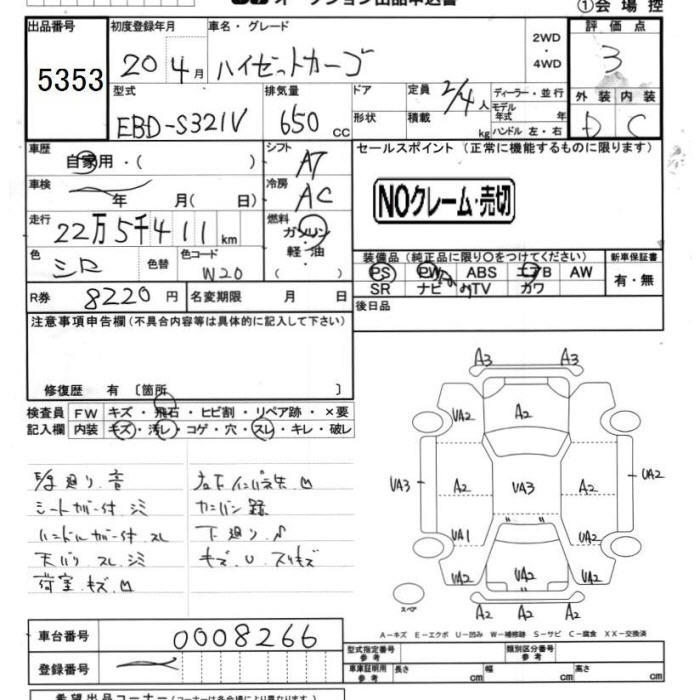 オークション出品申込書 ①会場控
出品番号 初度登録年月 車名・グレード 2WD ・ 4WD 評価点
5353 20 4月 ハイゼットカーゴ 3
型式 排気量 ドア 定員 2/4人 ディーラー・並行 外装 内装
EBD-S321V 650 cc 形状 積載 kg モデル年式 年 D C
ハンドル 左・右
車歴 自家用・( ) シフト AT セールスポイント (正常に機能するものに限ります)
車検 年 月( 日) 冷房 AC NOクレーム・売切
走行 22万5千411km 燃料 ガソリン・軽・油
色 シロ 色替 色コード W20 装備品(純正品に限り○をつけてください) 新車保証書
PS PW ABS エアB AW 有・無
SR ナビ TV カワ
R券 8220円 名変期限 月 日 後日品
注意事項申告欄(不具合内容等は具体的に記入して下さい)
修復歴 有 〔箇所 〕
検査員 FW キズ・飛石・ヒビ割・リペア跡・×要
記入欄 内装 キズ・汚レ・コゲ・穴・スレ・キレ・破レ
廻り 音
シートカバー付 シミ カンバン跡
ハンドルカバー付 スレ 下廻り
天バリ スレ シミ キズ U スリキズ
荷室 キズ 凹
A3 A3
UA2 A2 A2
UA3 A2 UA3 A2 UA2
UA1 A2
UA2 UA2
スペア
A2 A2 A2
A-キズ E-エクボ U-凹み W-補修跡 S-サビ C-腐食 XX-交換済
車台番号 0008266
型式指定番号 参考 類別区分番号 参考
登録番号 車庫証明用 参考 長さ cm 幅 cm 高さ cm
希望出品コーナー